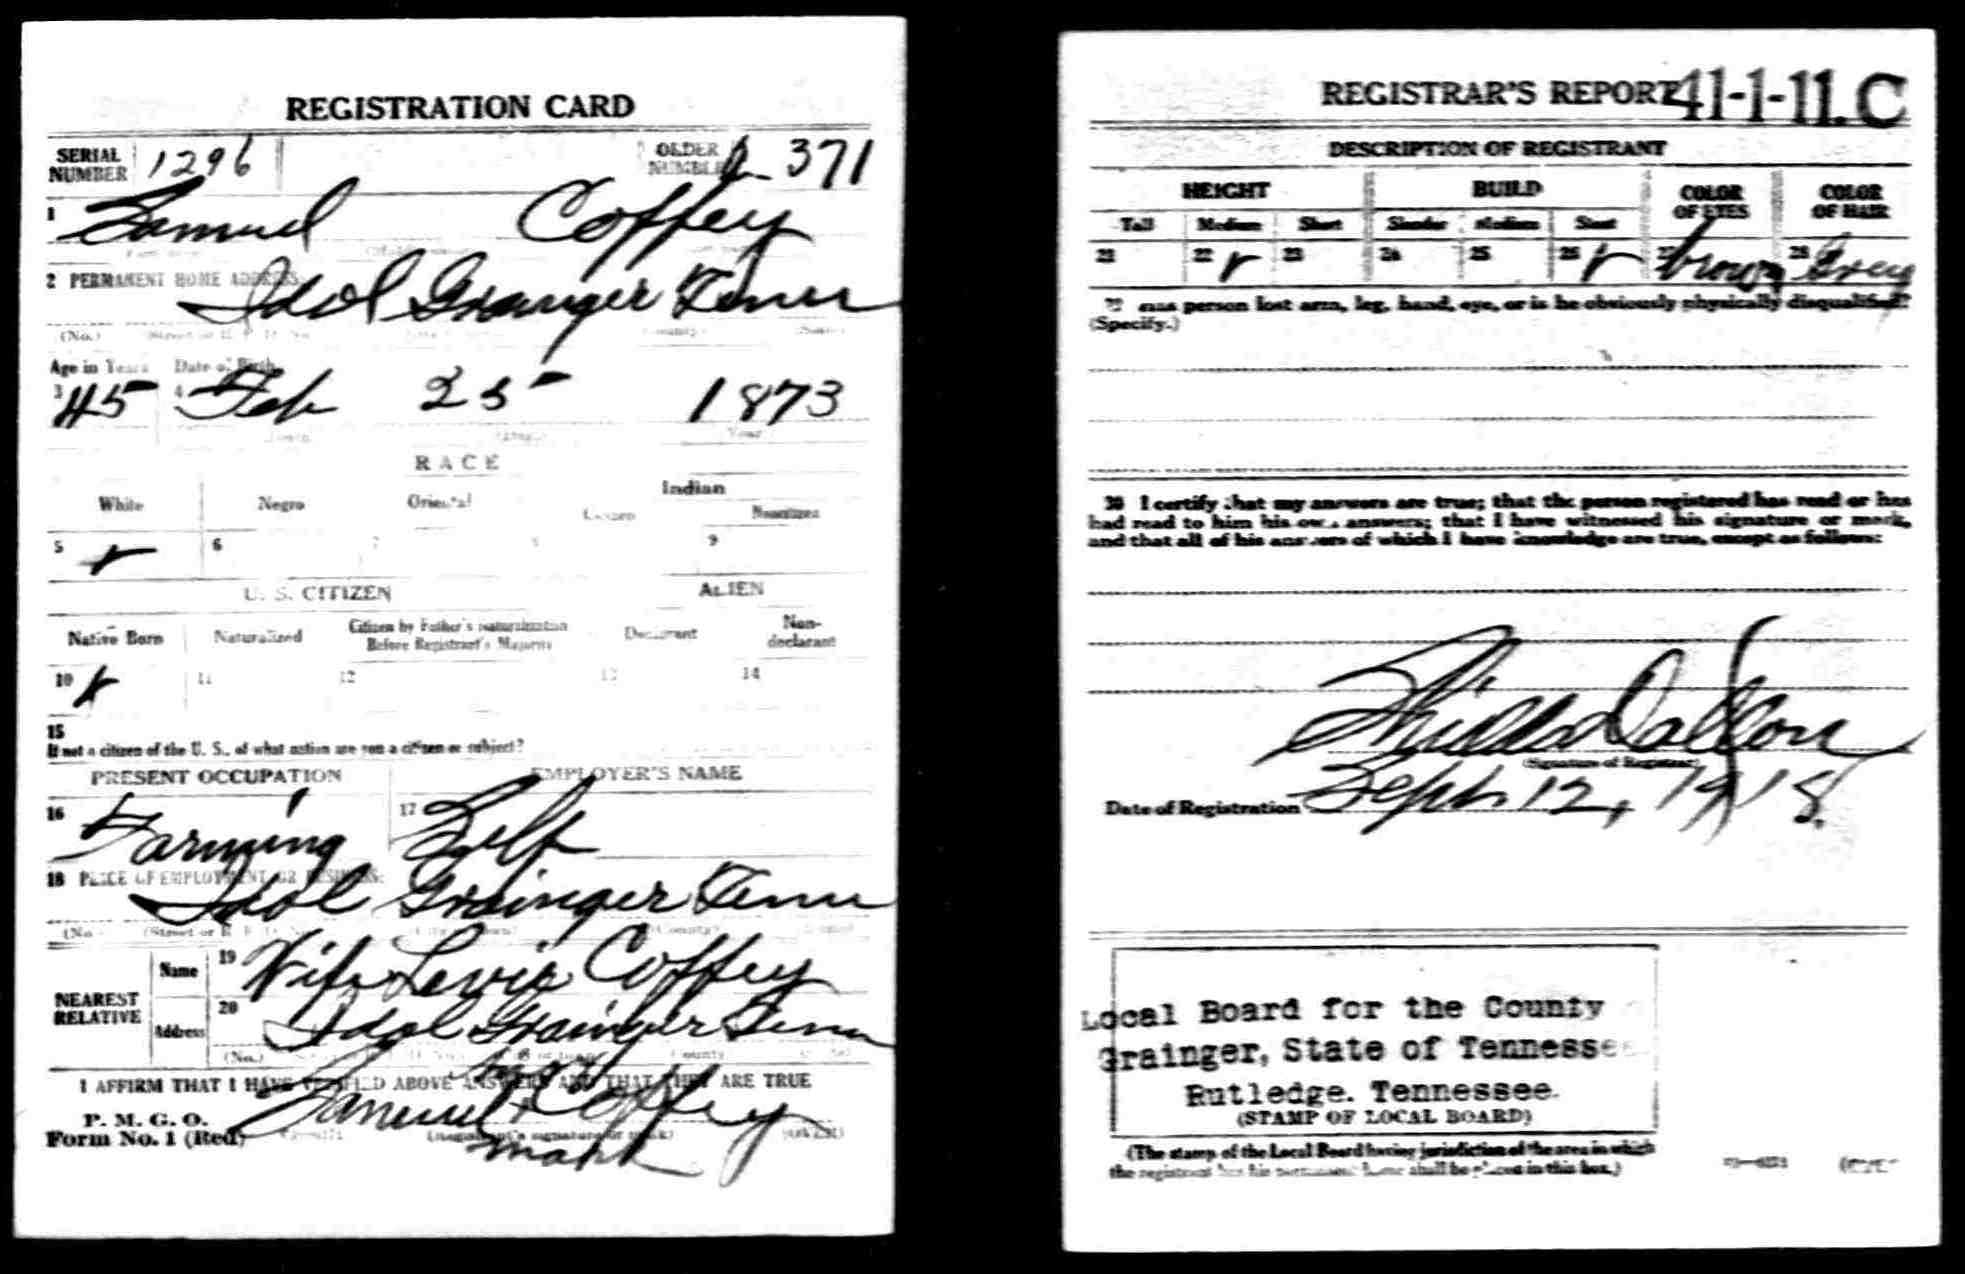 REGISTRATION CARD
SERIAL NUMBER 1296 ORDER NUMBER A 371
1 Samuel Coffey
2 PERMANENT HOME ADDRESS:
Idol Grainger Tenn
(No.) (County)
Age in Years Date of Birth
3 45 4 Feb 25 1873
Year
RACE
White Negro Oriental Indian
Citizen Noncitizen
5 6 7 8 9
U. S. CITIZEN ALIEN
Native Born Naturalized Citizen by Father's Naturalization Before Registrant's Majority Declarant Non-declarant
10 11 12 13 14
15
If not a citizen of the U. S., of what nation are you a citizen or subject?
PRESENT OCCUPATION EMPLOYER'S NAME
16 Farming 17 Self
18 PLACE OF EMPLOYMENT OR BUSINESS:
Idol Grainger Tenn
(No.) (Street or R. F. D. No.) (City or town) (County) (State)
NEAREST RELATIVE
Name 19 Wife Levis Coffey
Address 20 Idol Grainger Tenn
(No.)
I AFFIRM THAT I HAVE VERIFIED ABOVE ANSWERS AND THAT THEY ARE TRUE
P. M. G. O.
Form No. 1 (Red) Samuel Coffey
(Registrant's signature or mark) (OVER)
mark
REGISTRAR'S REPORT 41-1-11.C
DESCRIPTION OF REGISTRANT
HEIGHT BUILD COLOR OF EYES COLOR OF HAIR
Tall Medium Short Slender Medium Stout
21 22 23 24 25 26 27 brown 28 Grey
29 Has person lost arm, leg, hand, eye, or is he obviously physically disqualified?
(Specify.)
30 I certify that my answers are true; that the person registered has read or has
had read to him his own answers; that I have witnessed his signature or mark,
and that all of his answers of which I have knowledge are true, except as follows:
Dalton
(Signature of Registrar)
Date of Registration Sept. 12, 1918
Local Board for the County
Grainger, State of Tennessee
Rutledge. Tennessee.
(STAMP OF LOCAL BOARD)
(The stamp of the Local Board having jurisdiction of the area in which
the registrant has his permanent home shall be placed in this box.)
(OVER)